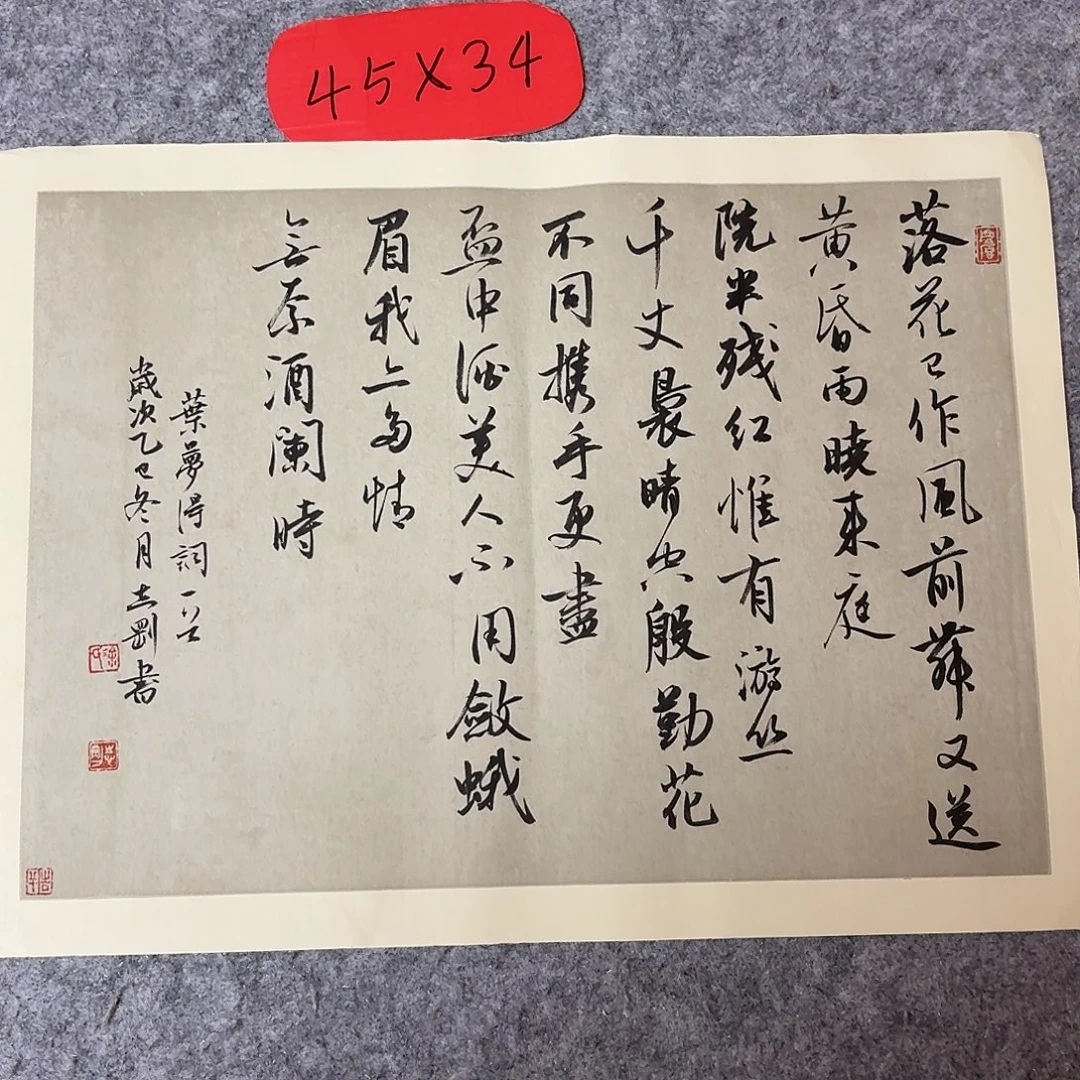 45X34
落花已作風前舞又送
黄昏雨曉来庭
院半残紅惟有游絲
千丈裊晴空殷勤花
不同携手更盡
盃中酒美人不用斂蛾
眉我亦多情
無奈酒闌時
葉夢得詞一首
歲次乙巳冬月志剛書